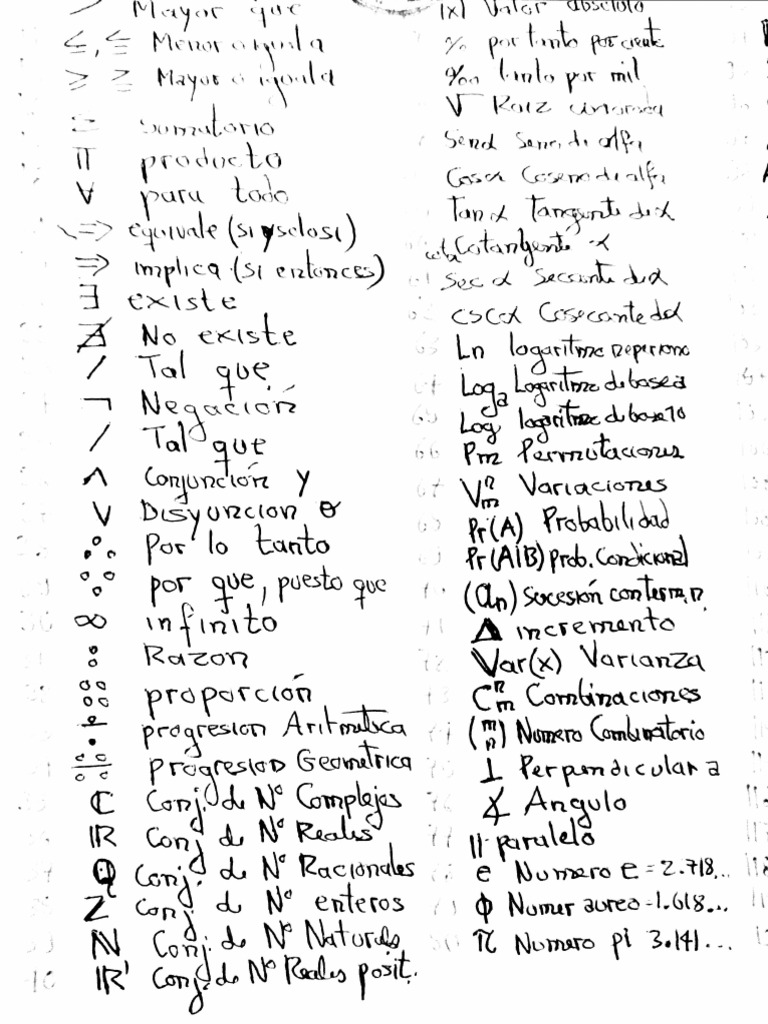 > Mayor que
≤, ≦ Menor o iguala
≥ ≧ Mayor o iguala
Σ sumatorio
Π producto
∀ para todo
⇔ equivale (si y solo si)
⇒ implica (si entonces)
∃ existe
∄ No existe
/ Tal que
¬ Negación
/ Tal que
∧ Conjunción y
∨ Disyuncion o
∴ Por lo tanto
∵ por que, puesto que
∞ infinito
: Razon
:: proporción
progresion Aritmetica
progresion Geometrica
ℂ Conj. de Nº Complejos
ℝ Conj de Nº Reales
ℚ Conj. de Nº Racionales
ℤ Conj de Nº enteros
ℕ Conj. de Nº Naturales
ℝ⁺ Conj. de Nº Reales posit.
|x| Valor absoluto
% por tanto por ciento
‰ tanto por mil
√ Raiz cuadrada
Senα Seno de alfa
Cosα Coseno de alfa
Tanα Tangente de α
cotα Cotangente α
Sec α Secante de α
CSCα Cosecante de α
Ln logaritmo neperiano
Logₐ Logaritmo de base a
Log logaritmo de base 10
Pm Permutaciones
Vⁿₘ Variaciones
Pr(A) Probabilidad
Pr(A|B) prob. Condicional
(aₙ) Sucesión con termi. n
Δ incremento
Var(x) Varianza
Cⁿₘ Combinaciones
(m n) Numero Combinatorio
⊥ Perpendicular a
∡ Angulo
|| paralelo
e Numero e = 2.718...
Φ Numer aureo = 1.618...
π Numero pi 3.141...